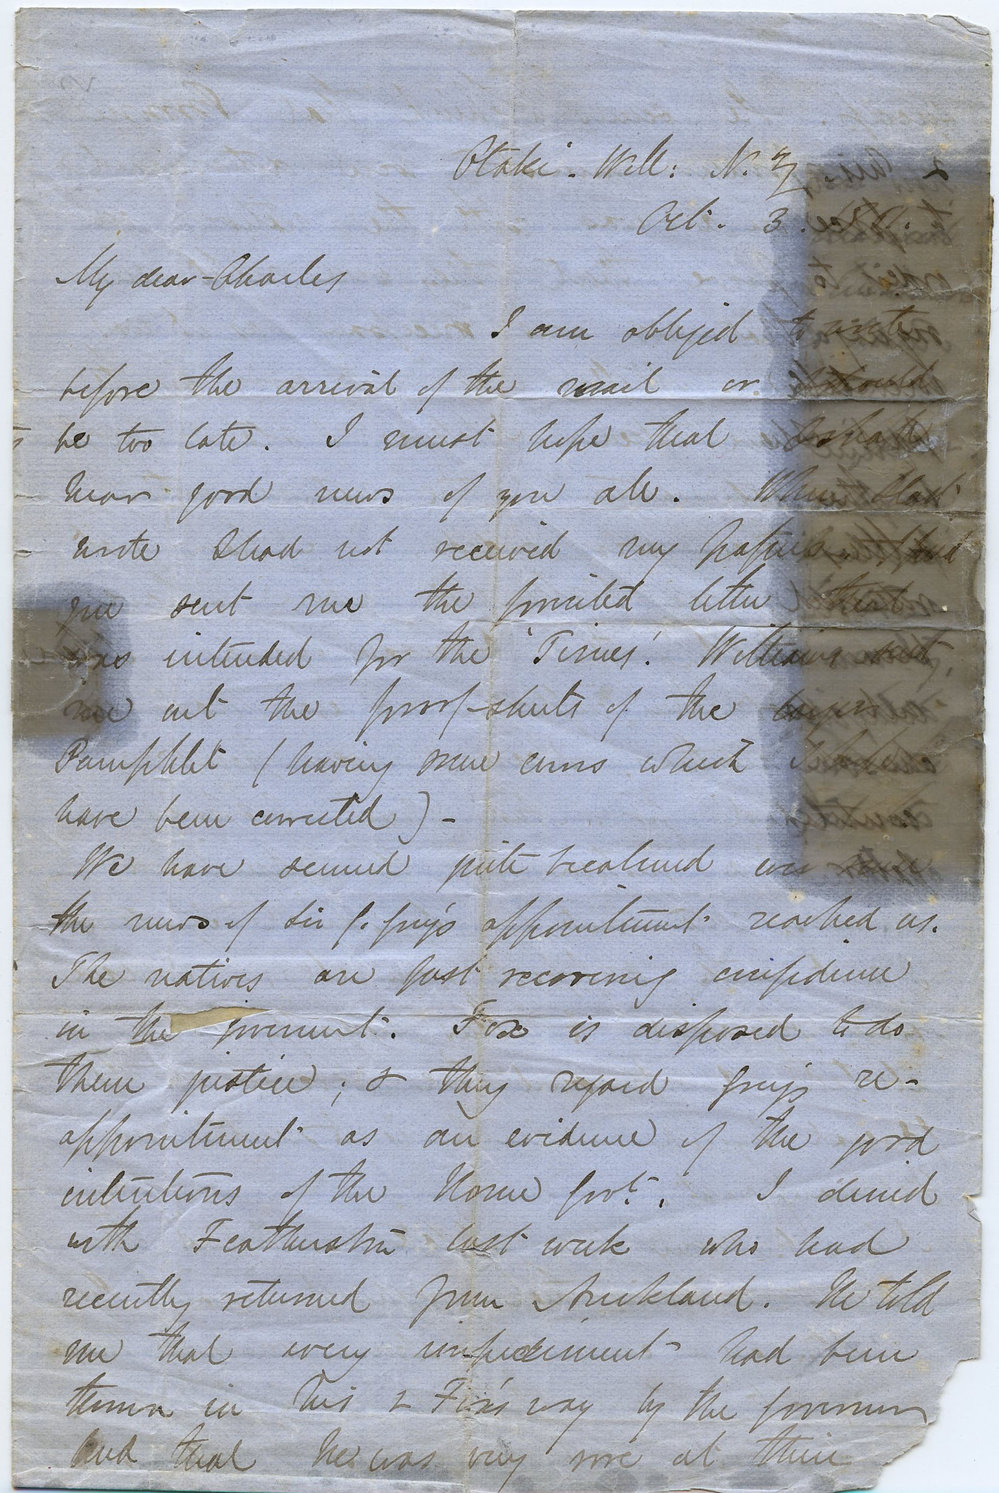 Otaki. Well: N.Z
Oct. 3.
My dear Charles
I am obliged to write
before the arrival of the mail or I should
be too late. I must hope that I shall
hear good news of you all. When
wrote I had not received my papers had
you sent me the printed letter that
was intended for the 'Times'. Williams sent
me out the proof-sheets of the
Pamphlet (having some errors which
have been corrected) -
We have seemed quite becalmed ever since
the news of Sir G. Grey's appointment reached us.
The natives are just recovering confidence
in the government. Fox is disposed to do
them justice; & they regard Grey's re-
appointment as an evidence of the good
intentions of the Home Govt. I dined
with Featherston last week who had
recently returned from Auckland. He told
me that every impediment had been
thrown in his & Fox's way by the Governor
and that he was very sore at their